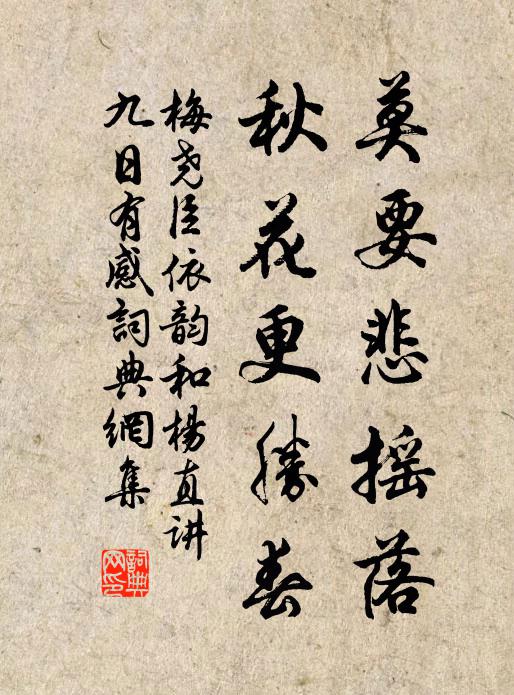 莫要悲摇落
秋花更勝春
梅尧臣依韵和楊直讲
九日有感詞典網集
詞典网印